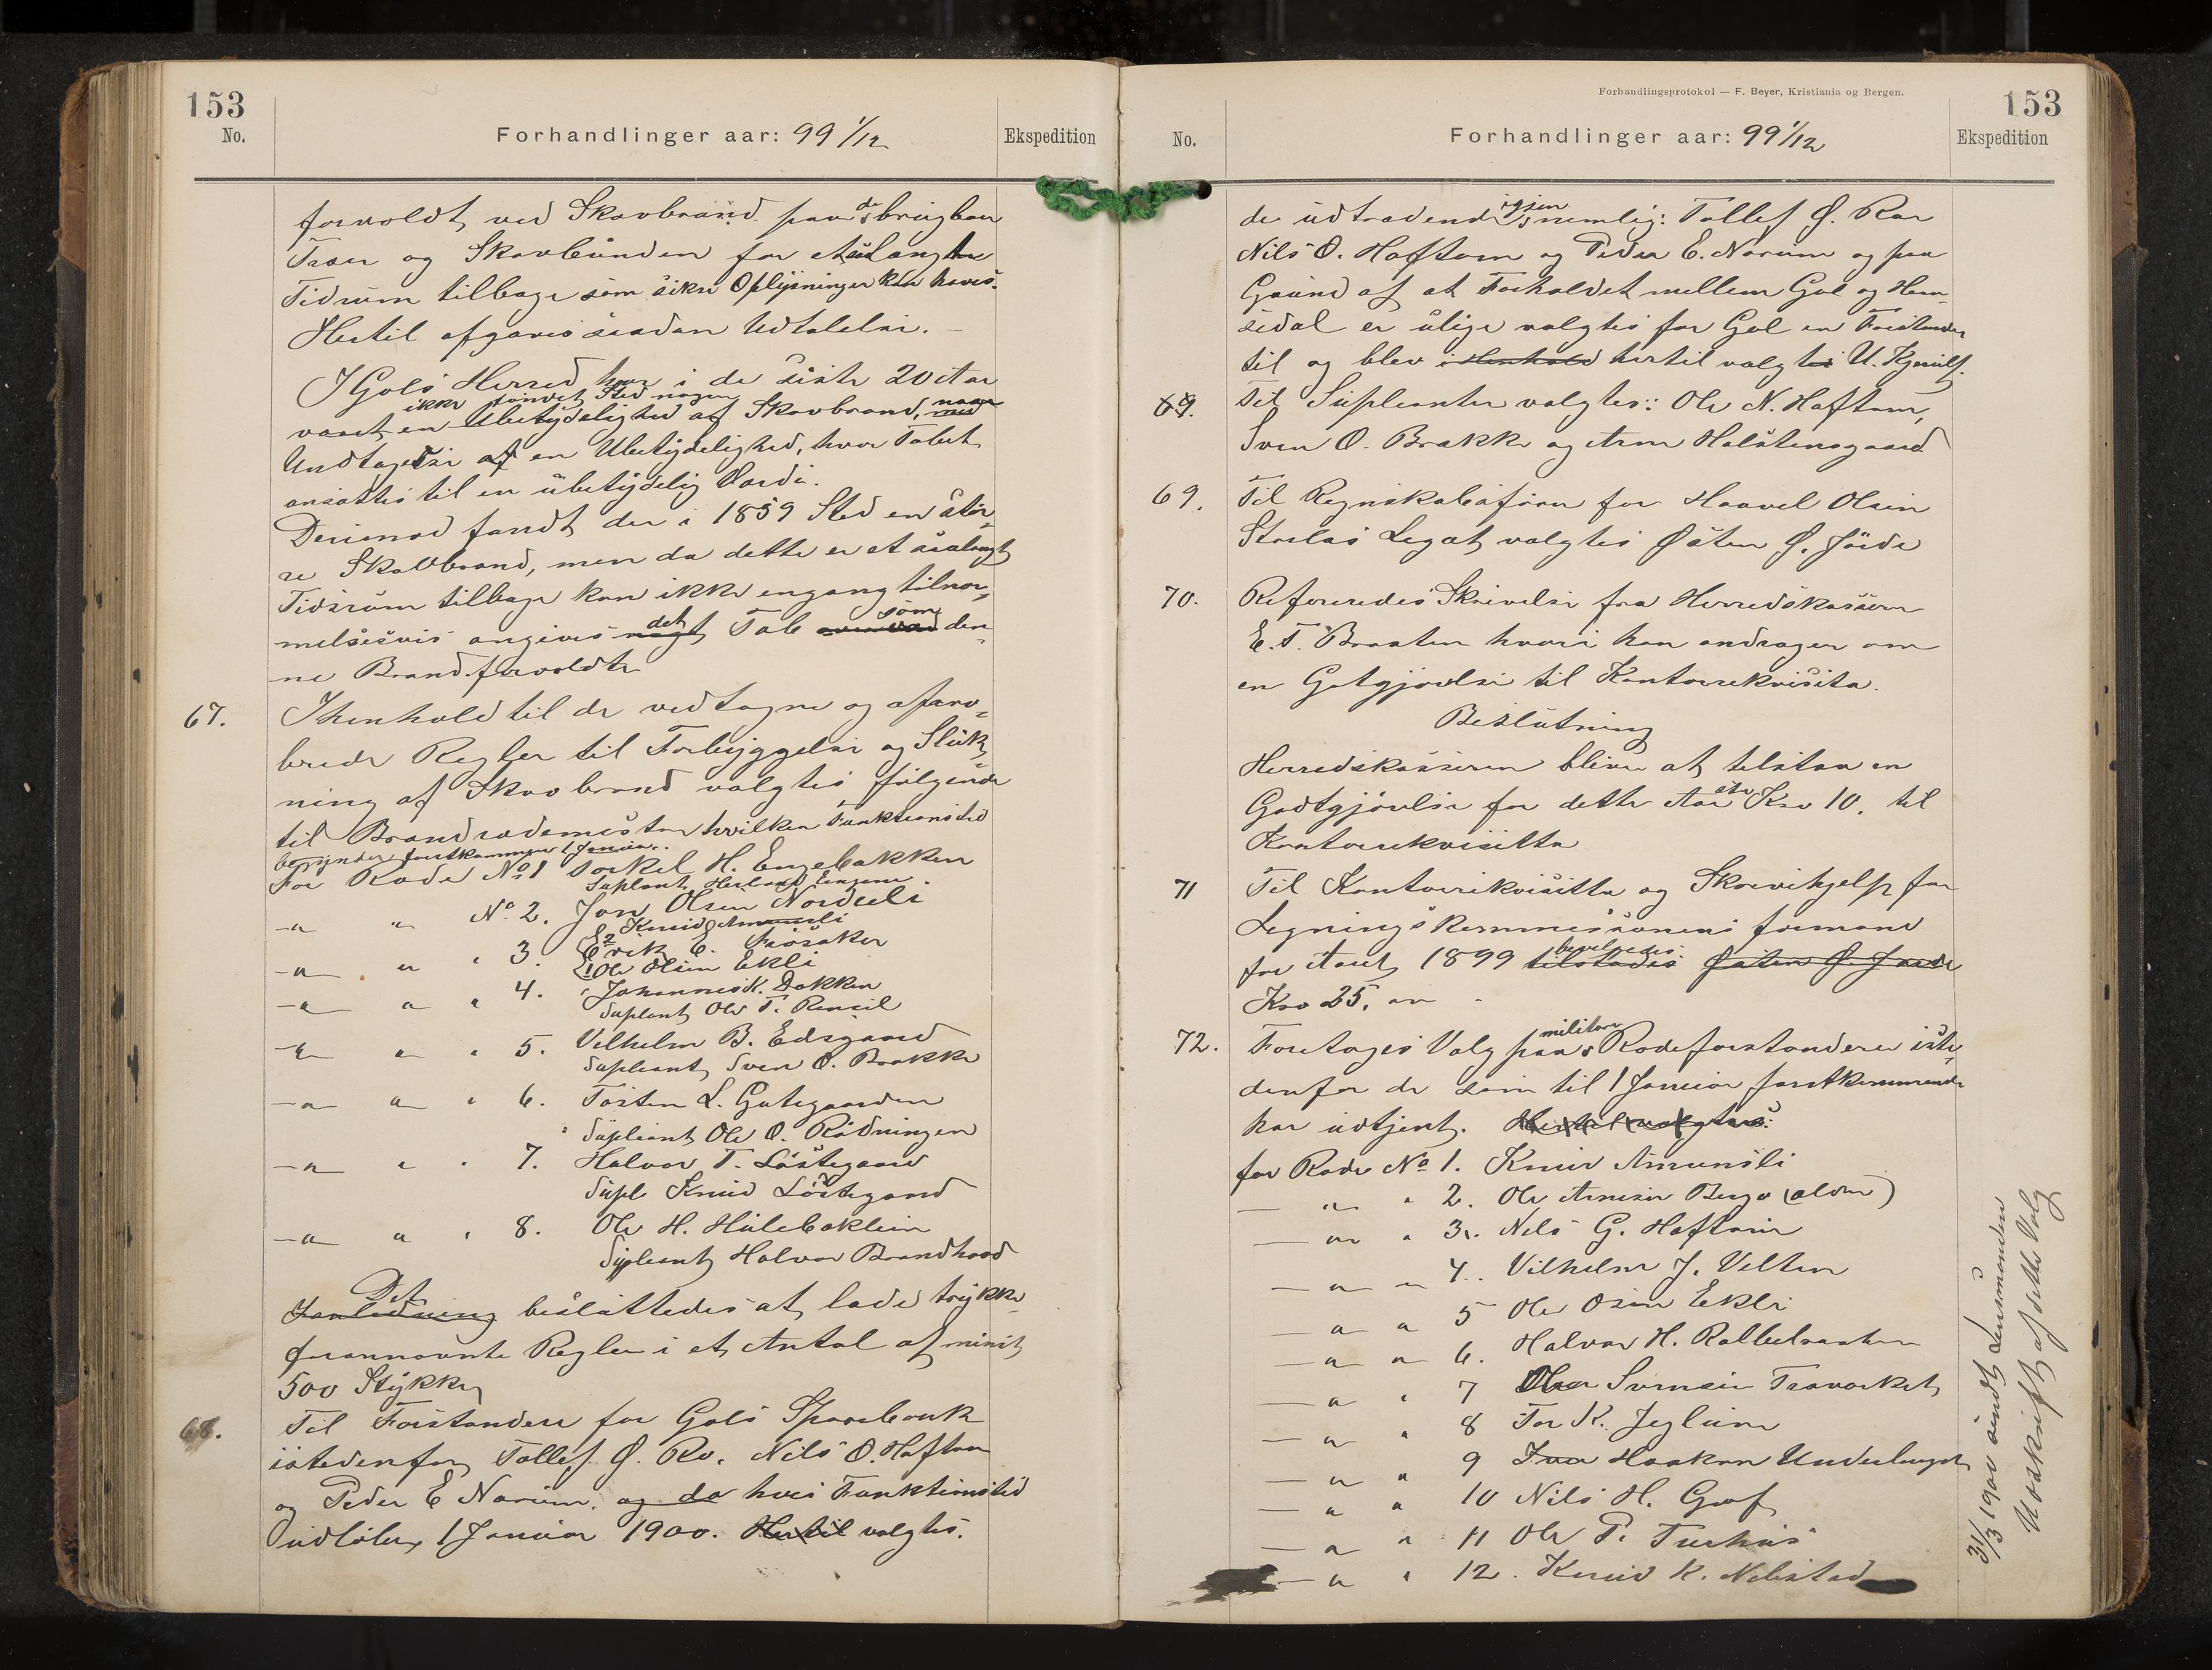 153
No.
Forhandlinger aar: 99 1/12
Ekspedition
forvoldt ved Skovbrand paa de brugbare
Træer og Skovbunden for et saa langt
Tidsrum tilbage som sikre Oplysninger kan haves.
Hertil afgaves saadan Udtalelse. —
I Gols Herred har i de siste 20 Aar
ikke fundet Sted nogen
været en Ubetydelighed af Skovbrand, naar med
Undtagelse af en Ubetydelighed, hvor Tabet
ansattes til en ubetydelig Værdi.
Derimod fandt der i 1859 Sted en stør-
re Skovbrand, men da dette er et saa langt
Tidsrum tilbage kan ikke engang tilnær-
melsesvis angives noget det Tab som den-
ne Brand forvoldte
67. I henhold til de vedtagne og approberede
brede Regler til Forbyggelse og Sluk-
ning af Skovbrand valgtes følgende
til Brandrodemestre hvilkes Funktionstid
begynder førstkommende 1 Januar.
For Rode No 1 Torkel H. Engebakken
Supleant Herland Engene
-"- " No. 2. Jon Olsen Nordeli
Knud Amunsli
-"- " " 3. 2 Erik E. Frøsaker
1 Ole Olsen Ekli
-"- " " 4. Johannes K. Dokken
Supleant Ole T. Renseil
-"- " " 5. Velhelm B. Eidsgaard
Supleant Sven O. Brakke
-"- " " 6. Tosten L. Gutegaarden
Supleant Ole O. Rødningen
-"- " " 7. Halvor T. Løstegaard
Supl Knud Løstegaard
-"- " " 8. Ole H. Hulebakken
Supleant Halvor Brandhovd
Det
Foranledning besluttedes at lade trykke
førnævnte Regler i et Antal af mindst
500 Stykker
68. Til Forstandere for Gols Sparebank
istedenfor Tollef Ø. Ro, Nils O. Hoftun
og Peder E Narum. og da hvis Funktionstid
udløber 1 Januar 1900. Hertil valgtes.
Forhandlingsprotokol — F. Beyer, Kristiania og Bergen.
153
No.
Forhandlinger aar: 99 1/12
Ekspedition
de udtrædende igjen nemlig: Tollef Ø. Roe
Nils O. Hoftun og Peder E. Narum og paa
Grund af at Forholdet mellem Gol og Hem-
sedal er ulige valgtes for Gol en Forstander
til og blev i Henhold hertil valgt U. Kjeruulf.
69. Til Supleanter valgtes: Ole N. Hoftun,
Sven O. Brakke og Arne Halstensgaard
69. Til Regnskabsfører for Haavel Olsen
Storlas Legat valgtes Østen Ø. Jørde
70. Refereredes Skrivelse fra Herredskasserer
E. T. Braaten hvori han andrager om
en Gotgjørelse til Kontorrekvisita.
Beslutning
Herredskassereren bliver at tilstaa en
Godtgjørelse for dette Aar stor Kro 10. til
Kontorrekvisitta
71 Til Kontorrekvisitta og Skrivehjelp for
Ligningskommissionens formand
for Aaret 1899 bevilgedes tilstodes Østen Ø. Jørde
Kro 25. —
72. Foretoges Valg paa militære Rodeforstandere iste-
denfor de som til 1 Januar førstkommende
har udtjent. Hertil valgtes:
for Rode No 1. Knud Amunsli
— " " 2. Ole Arnesen Bergo (ældre)
— " " 3. Nils G. Hoftun
— " " 4. Vilhelm J. Velten
— " " 5 Ole Osen Ekli
— " " 6. Halvor H. Rolbelsaaten
— " " 7 Ola Svensen Travarket
— " " 8 Tor K. Jeglum
— " " 9 Ivar Haakon Underberget
— " " 10 Nils H. Grøf
— " " 11 Ole P. Turhus
— " " 12. Knud K. Nibstad
31/3 1900 sendt Lensmanden
Udskrift af dette Valg